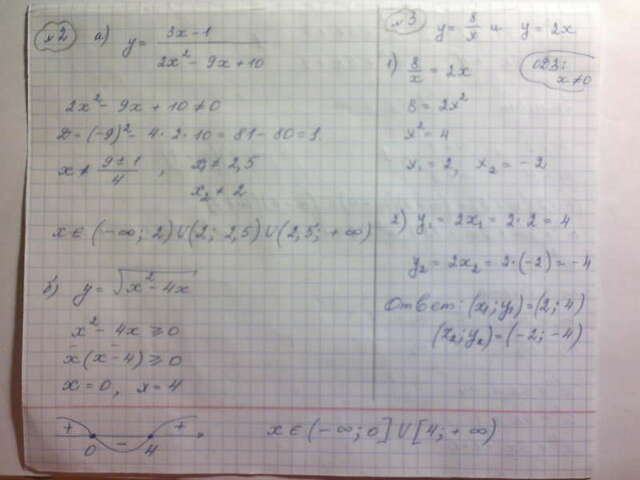 №2 а) y = (3x - 1)/(2x² - 9x + 10)
2x² - 9x + 10 ≠ 0
D = (-9)² - 4 · 2 · 10 = 81 - 80 = 1
x ≠ (9 ± 1)/4 , x₁ ≠ 2,5
x₂ ≠ 2
x ∈ (-∞; 2) ∪ (2; 2,5) ∪ (2,5; +∞)
б) y = √(x² - 4x)
x² - 4x ≥ 0
x(x - 4) ≥ 0
x = 0, x = 4
+ - +
0 4
x ∈ (-∞; 0] ∪ [4; +∞)
№3 y = 8/x и y = 2x
1) 8/x = 2x ОДЗ: x ≠ 0
8 = 2x²
x² = 4
x₁ = 2, x₂ = -2
2) y₁ = 2x₁ = 2 · 2 = 4
y₂ = 2x₂ = 2 · (-2) = -4
Ответ: (x₁; y₁) = (2; 4)
(x₂; y₂) = (-2; -4)